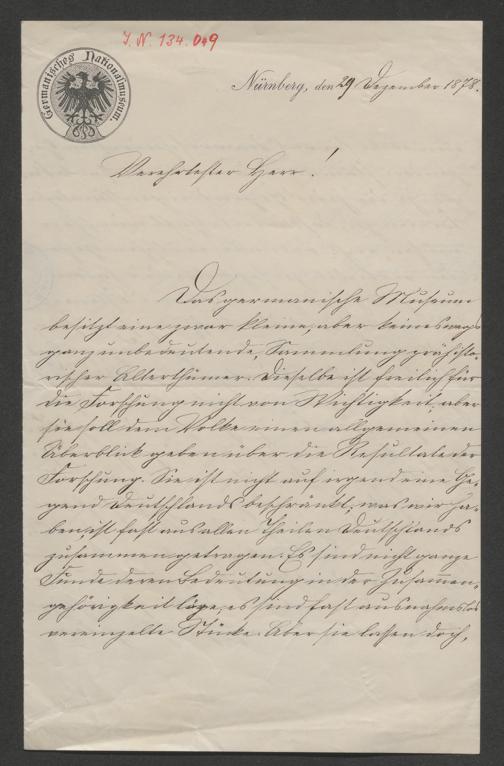 J. N. 134.049
Germanisches Nationalmuseum.
Nürnberg, den 29 Dezember 1878.
Verehrtester Herr!
Das germanische Museum
besitzt eine zwar kleine, aber keineswegs
ganz unbedeutende, Sammlung prähisto-
rischer Alterthümer. Dieselbe ist freilich für
die Forschung nicht von Wichtigkeit, aber
sie soll dem Volke einen allgemeinen
Überblick geben über die Resultate der
Forschung. Sie ist nicht auf irgend eine Ge-
gend Deutschlands beschränkt; was wir ha-
ben, ist fast aus allen Theilen Deutschlands
zusammen getragen. Es sind nicht ganze
Funde deren Bedeutung in der Zusam̄en-
gehörigkeit läge, es sind fast ausnahmslos
vereinzelte Stücke. Aber sie lassen doch,